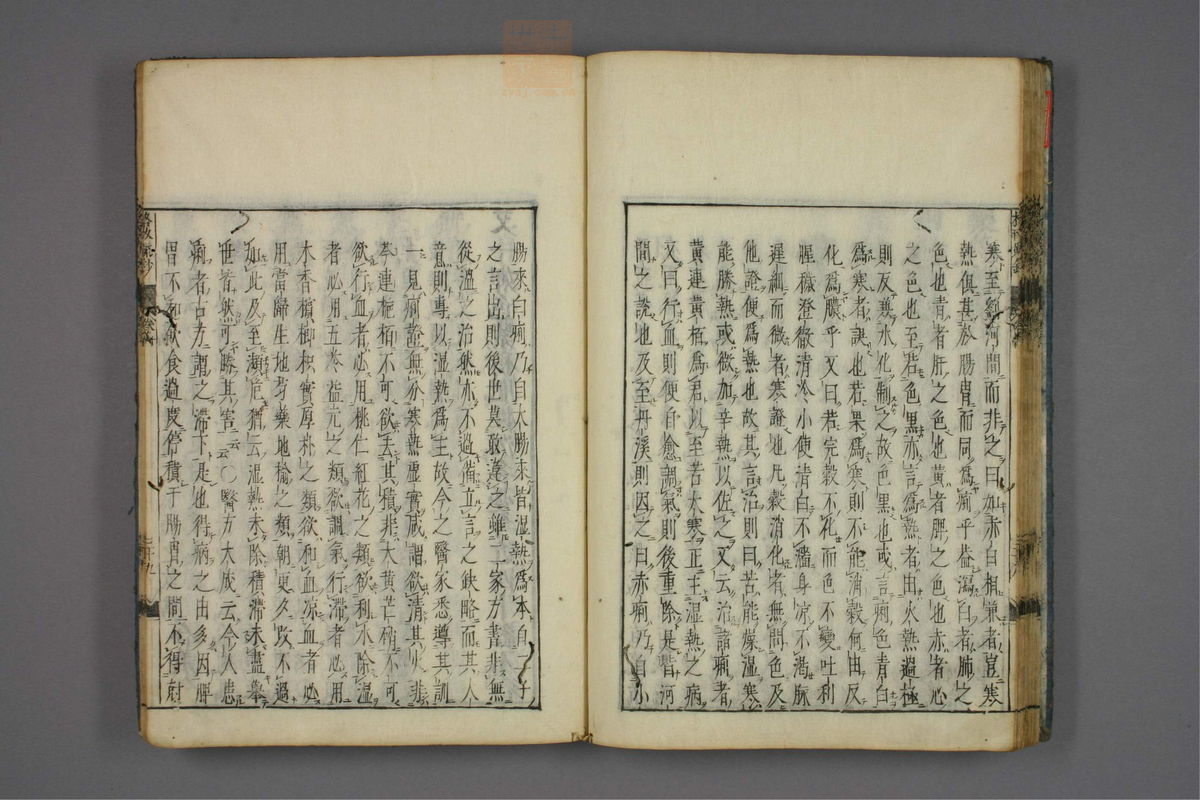 寒至劉河間而非之曰如赤白相兼者豈寒
熱俱甚於腸胃而同為痢乎蓋瀉白者肺之
色也青者肝之色也黃者脾之色也赤者心
之色也至若色黑亦言為熱者由火熱過極
則反兼水化制之故色黑也或言痢色青白
為寒者誤也若果為寒則不能消穀何由反
化為膿乎又曰若完穀不化而色不變吐利
腥穢澄徹清冷小便清白不濇身凉不渴脉
遲細而微者寒證也凡穀消化者無問色及
他證便為熱也故其言治則曰苦能燥濕寒
能勝熱或微加辛熱以佐之又云治諸痢者
黃連黃栢為君以至苦大寒正主濕熱之病
又曰行血則便自愈調氣則後重除是皆河
間之說也及至丹溪則因之曰赤痢乃自小
腸來白痢乃自大腸來皆湿熱為本自二子
之言出則後世莫敢違之雖二家方書非無
從溫之治然亦不過備立言之缺略而其大
意則專以湿熱為主故今之醫家悉尊其訓
一見痢證無分寒熱虛實咸謂欲清其火非
芩連梔栢不可欲去其積非大黃芒硝不可
欲行血者必用桃仁紅花之類欲利水除湿
者必用五苓益元之類欲調氣行滯者必用
木香檳榔枳實厚朴之類欲和血凉血者必
用當歸生地芍藥地榆之類朝更夕改不過
如此及至瀕危猶云湿熱未除積滯未盡舉
世皆然可勝其害云云〇醫方大成云今人患
痢者古方謂之滯下是也得病之由多因脾
胃不和飲食過度停積于腸胃之間不得尅